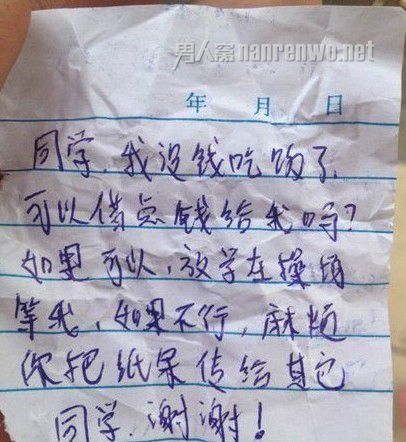 男人窝nanrenwo.net
年 月 日
同学,我没钱吃饭了,
可以借点钱给我吗?
如果可以,放学在操场
等我,如果不行,麻烦
你把纸条传给其它
同学,谢谢!